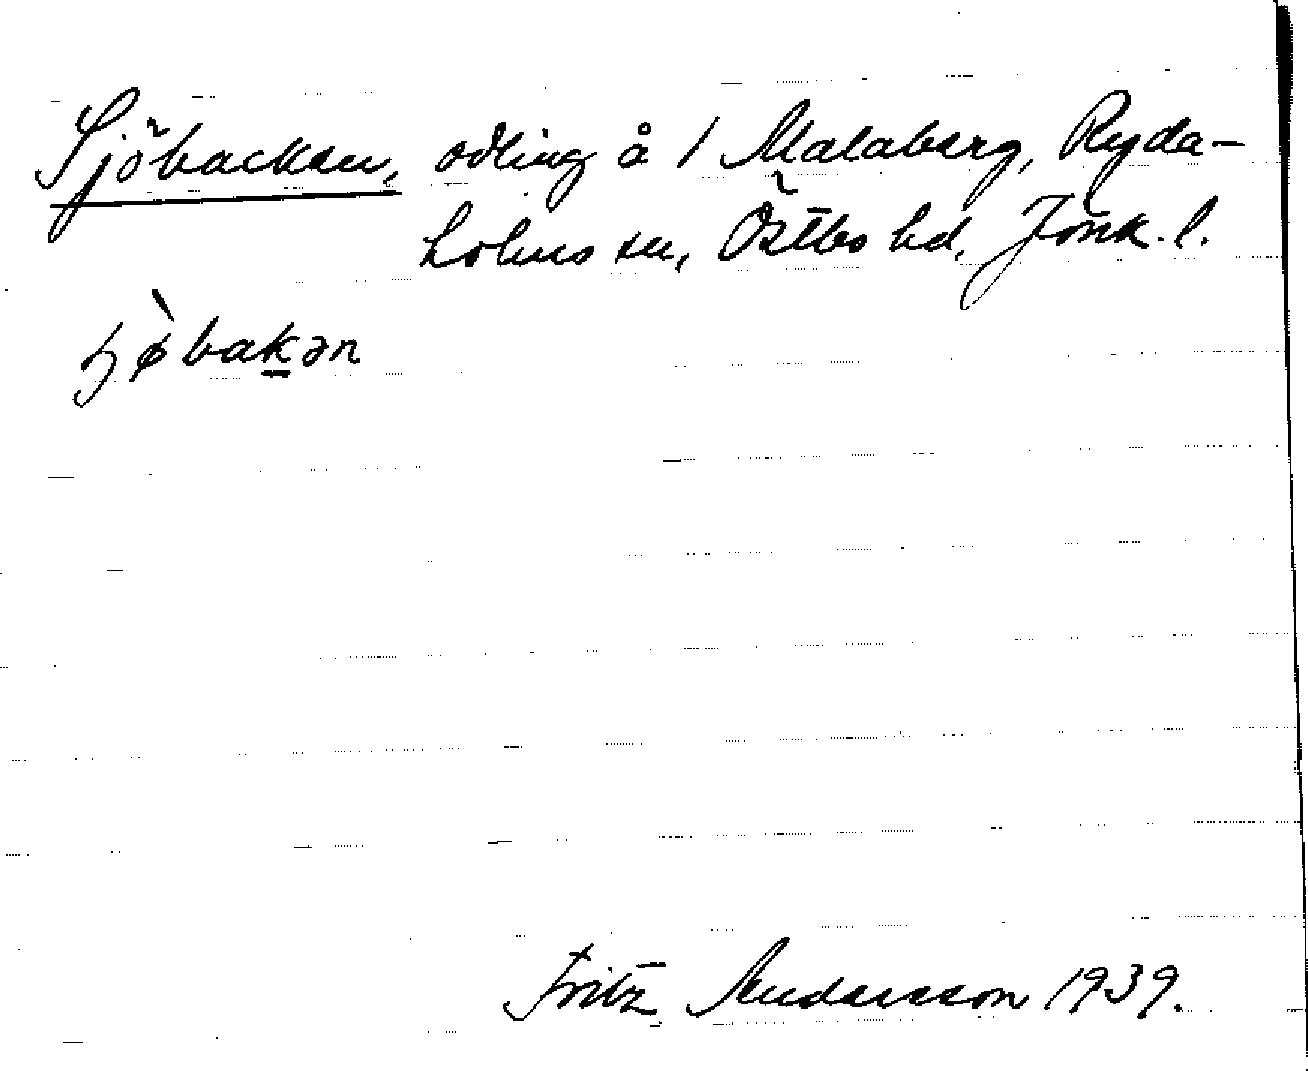 Sjöbacken, odling å 1 Malaberg, Ryda-
holms sn, Östbo hd, Jönk. l.
ɧø̀bakən
Fritz Andersson 1939.